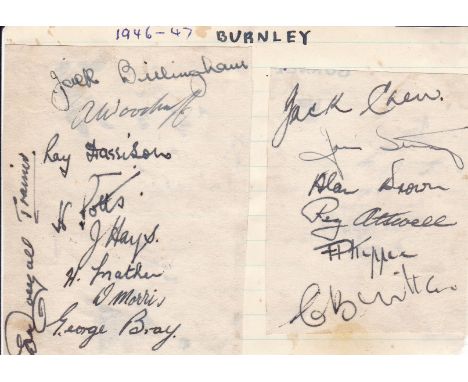 1946-47 BURNLEY
Jack Billingham
A Woodruff
Ray Harrison
H Potts
J Hays.
H. Mather
D Morris
George Bray.
Dougall Trainer.
Jack Chew.
Jim
Alan Brown
Reg Attwell
F P Kippax
C B